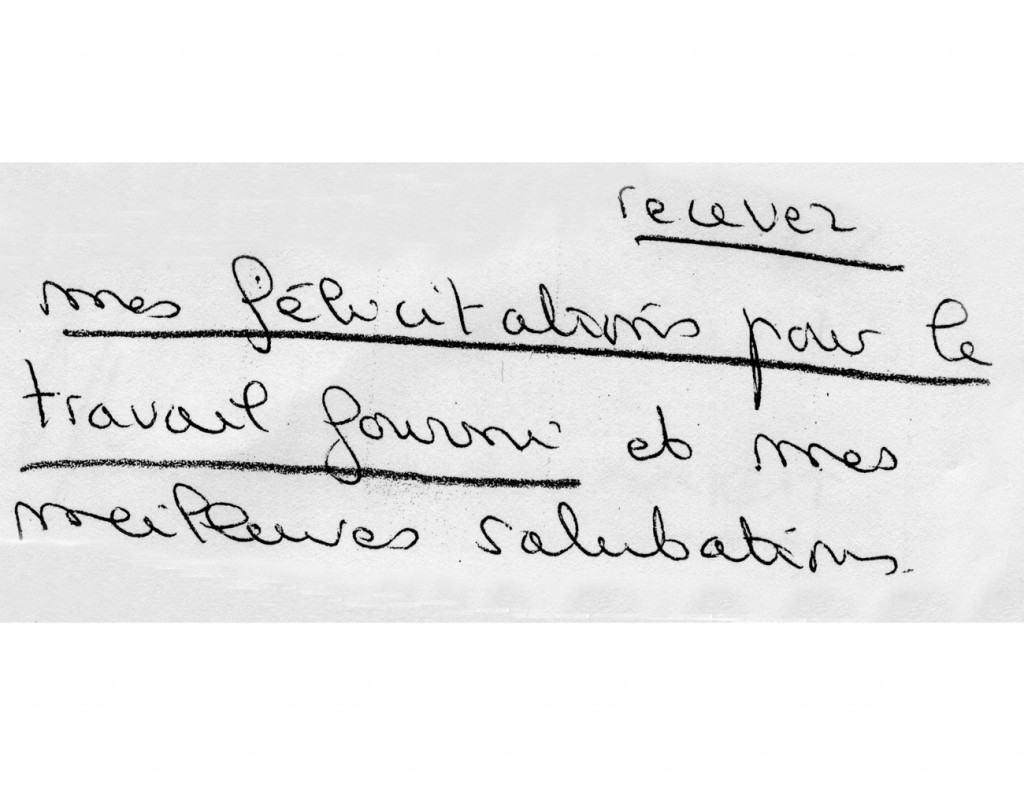 recevez
mes félicitations pour le
travail fourni et mes
meilleures salutations.